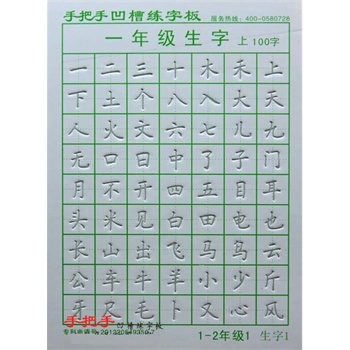 手把手凹槽练字板
服务热线：400-0580728
一年级生字 上 100字
一二三十木禾上
下土个八入大天
人火文六七儿九
无口日中了子门
月不开四五目耳
头米见白田电也
长山出飞马鸟云
公车牛羊小少
牙尺毛卜又心风
手把手 凹槽练字板
1-2年级1 生字1